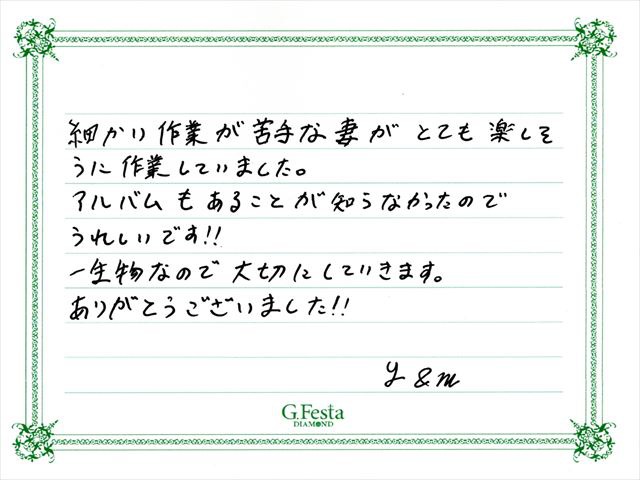 細かい作業が苦手な妻が とても 楽しそ
うに作業していました。
アルバムもあることが知らなかったので
うれしいです!!
一生物なので大切にしていきます。
ありがとうございました!!
y & m
G.Festa
DIAMOND